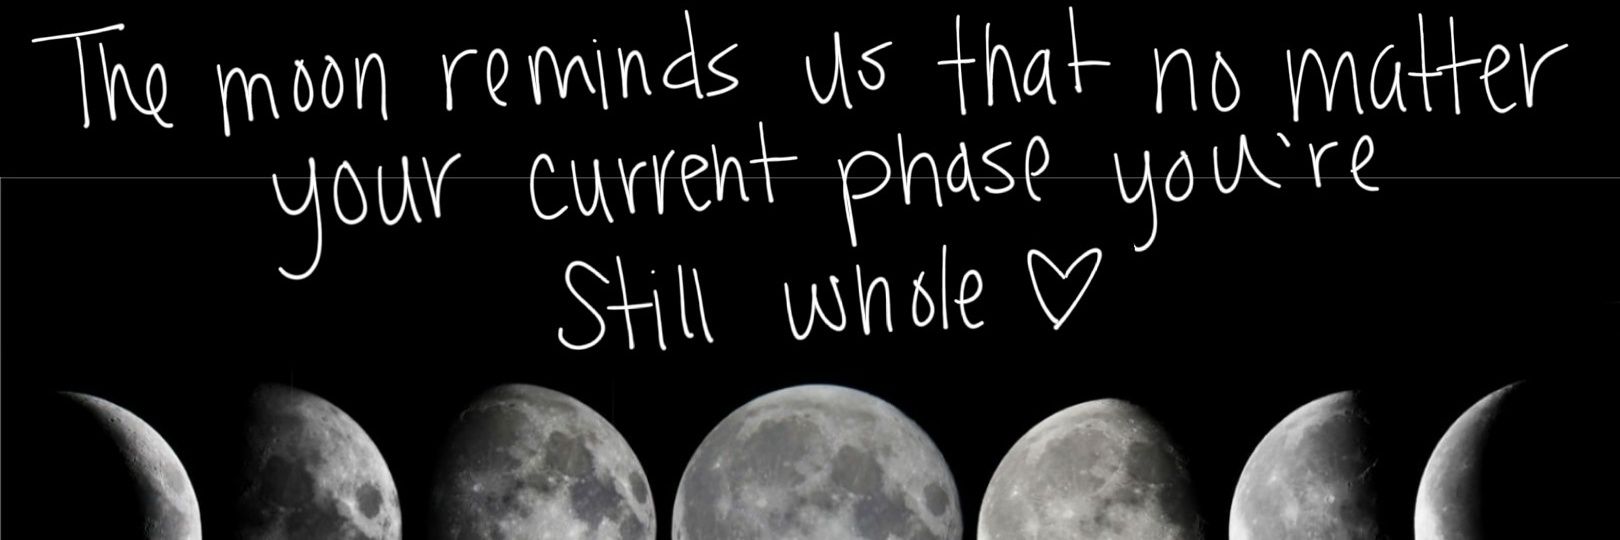 The moon reminds us that no matter
your current phase you're
Still whole ♡